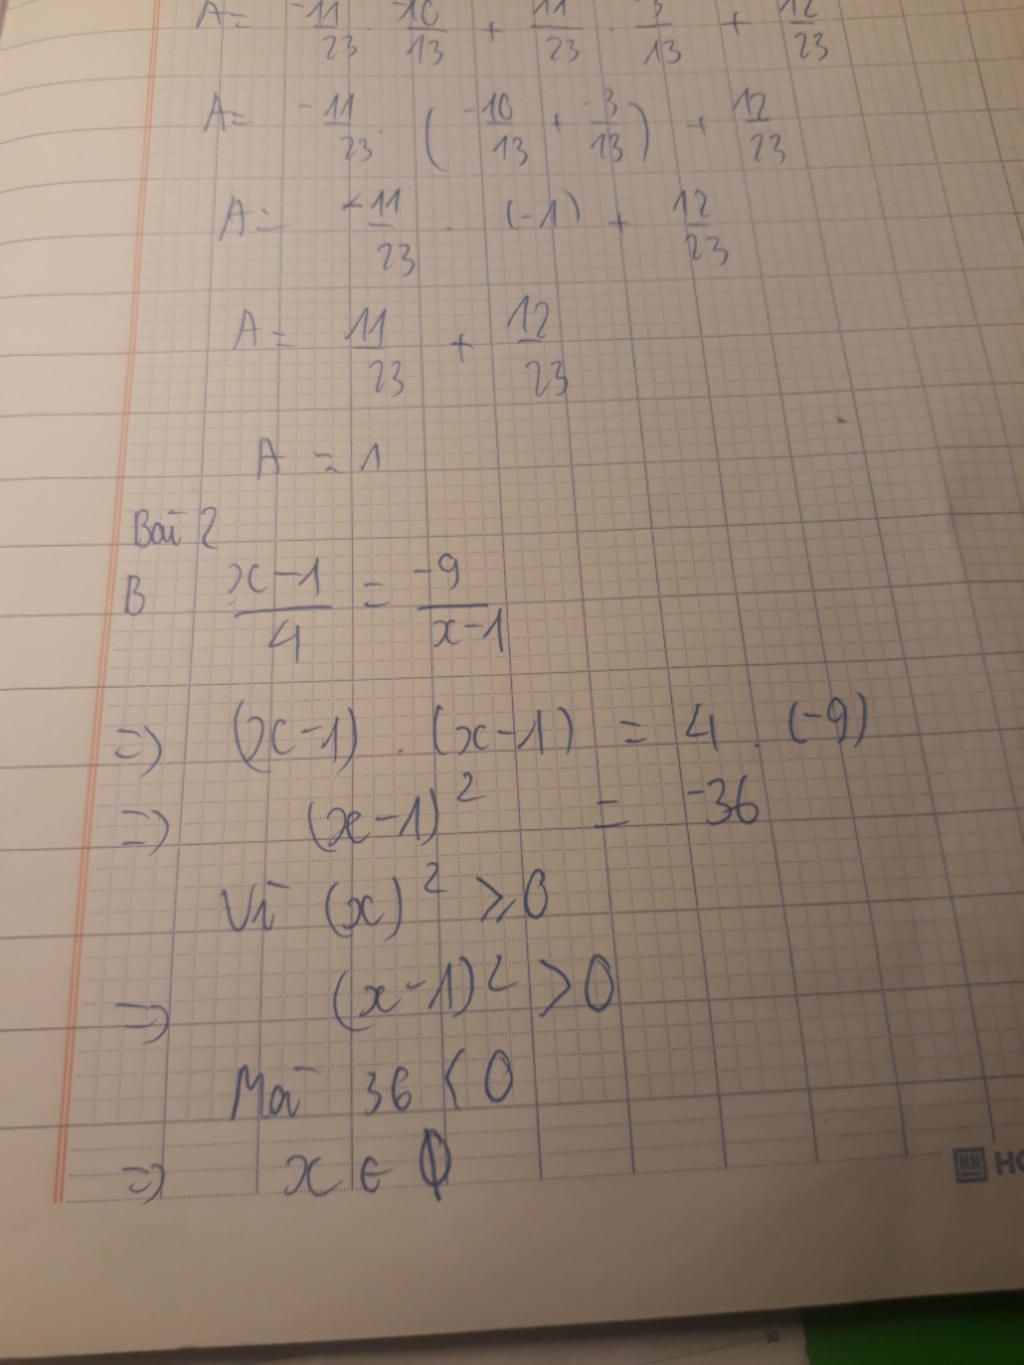 A = -11/23 . -10/13 + 11/23 . 3/13 + 12/23
A = -11/23 . ( -10/13 + -3/13 ) + 12/23
A = -11/23 . (-1) + 12/23
A = 11/23 + 12/23
A = 1
Bài 2
B x-1/4 = -9/x-1
=> (x-1) . (x-1) = 4 . (-9)
=> (x-1)² = -36
Vì (x)² ⩾ 0
=> (x-1)² > 0
Mà 36 < 0
=> x ∈ ∅
HO
30